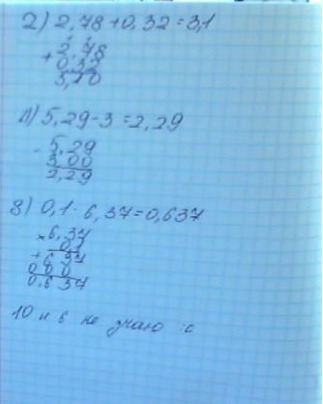 2) 2,78+0,32=3,1
2,78
+ 0,32
3,10
4) 5,29-3=2,29
- 5,29
3,00
2,29
8) 0,1·6,37=0,637
× 6,37
0,1
+ 637
000
0,637
10 и 6 не знаю :с